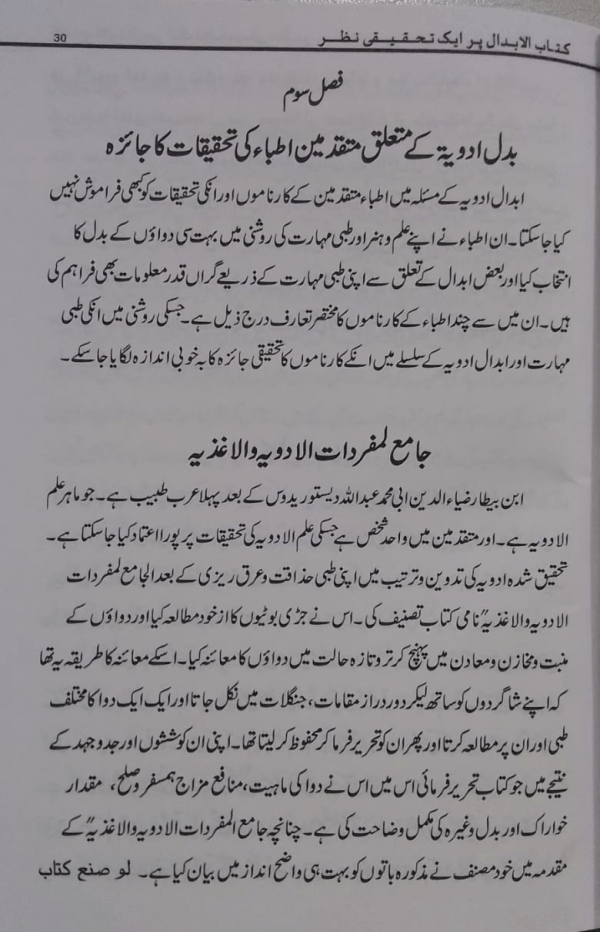 کتاب الابدال پر ایک تحقیقی نظر 30
فصل سوم
بدل ادویۃ کے متعلق متقدمین اطباء کی تحقیقات کا جائزہ
ابدال ادویہ کے مسئلہ میں اطباء متقدمین کے کارناموں اور انکی تحقیقات کو کبھی فراموش نہیں
کیا جا سکتا۔ ان اطباء نے اپنے علم و ہنر اور طبی مہارت کی روشنی میں بہت سی دواؤں کے بدل کا
انتخاب کیا اور بعض ابدال کے تعلق سے اپنی طبی مہارت کے ذریعے گراں قدر معلومات بھی فراہم کی
ہیں۔ ان میں سے چند اطباء کے کارناموں کا مختصر تعارف درج ذیل ہے۔ جسکی روشنی میں انکی طبی
مہارت اور ابدال ادویہ کے سلسلے میں انکے کارناموں کا تحقیقی جائزہ کا بہ خوبی اندازہ لگایا جا سکے۔
جامع لمفردات الادویہ والاغذیہ
ابن بیطار ضیاء الدین ابی محمد عبداللہ دیستوریدوس کے بعد پہلا عرب طبیب ہے۔ جو ماہر علم
الادویہ ہے۔ اور متقدمین میں واحد شخص ہے جسکی علم الادویہ کی تحقیقات پر پورا اعتماد کیا جا سکتا ہے۔
تحقیق شدہ ادویہ کی تدوین و ترتیب میں اپنی طبی حذاقت و عرق ریزی کے بعد الجامع لمفردات
الادویہ والاغذیہؒ نامی کتاب تصنیف کی۔ اس نے جڑی بوٹیوں کا از خود مطالعہ کیا اور دواؤں کے
منبت و مخازن و معادن میں پہنچ کر تر و تازہ حالت میں دواؤں کا معائنہ کیا۔ اسکے معائنہ کا طریقہ یہ تھا
کہ اپنے شاگردوں کو ساتھ لیکر دور دراز مقامات، جنگلات میں نکل جاتا اور ایک ایک دوا کا مختلف
طبی اور ان پر مطالعہ کرتا اور پھر ان کو تحریر فرما کر محفوظ کر لیتا تھا۔ اپنی ان کوششوں اور جدوجہد کے
نتیجے میں جو کتاب تحریر فرمائی اس میں اس نے دوا کی ماہیت، منافع مزاج ہمسفر و صلح، مقدار
خوراک اور بدل وغیرہ کی مکمل وضاحت کی ہے۔ چنانچہ جامع المفردات الادویہ والاغذیہؒ کے
مقدمہ میں خود مصنف نے مذکورہ باتوں کو بہت ہی واضح انداز میں بیان کیا ہے۔ لو صنع کتاب